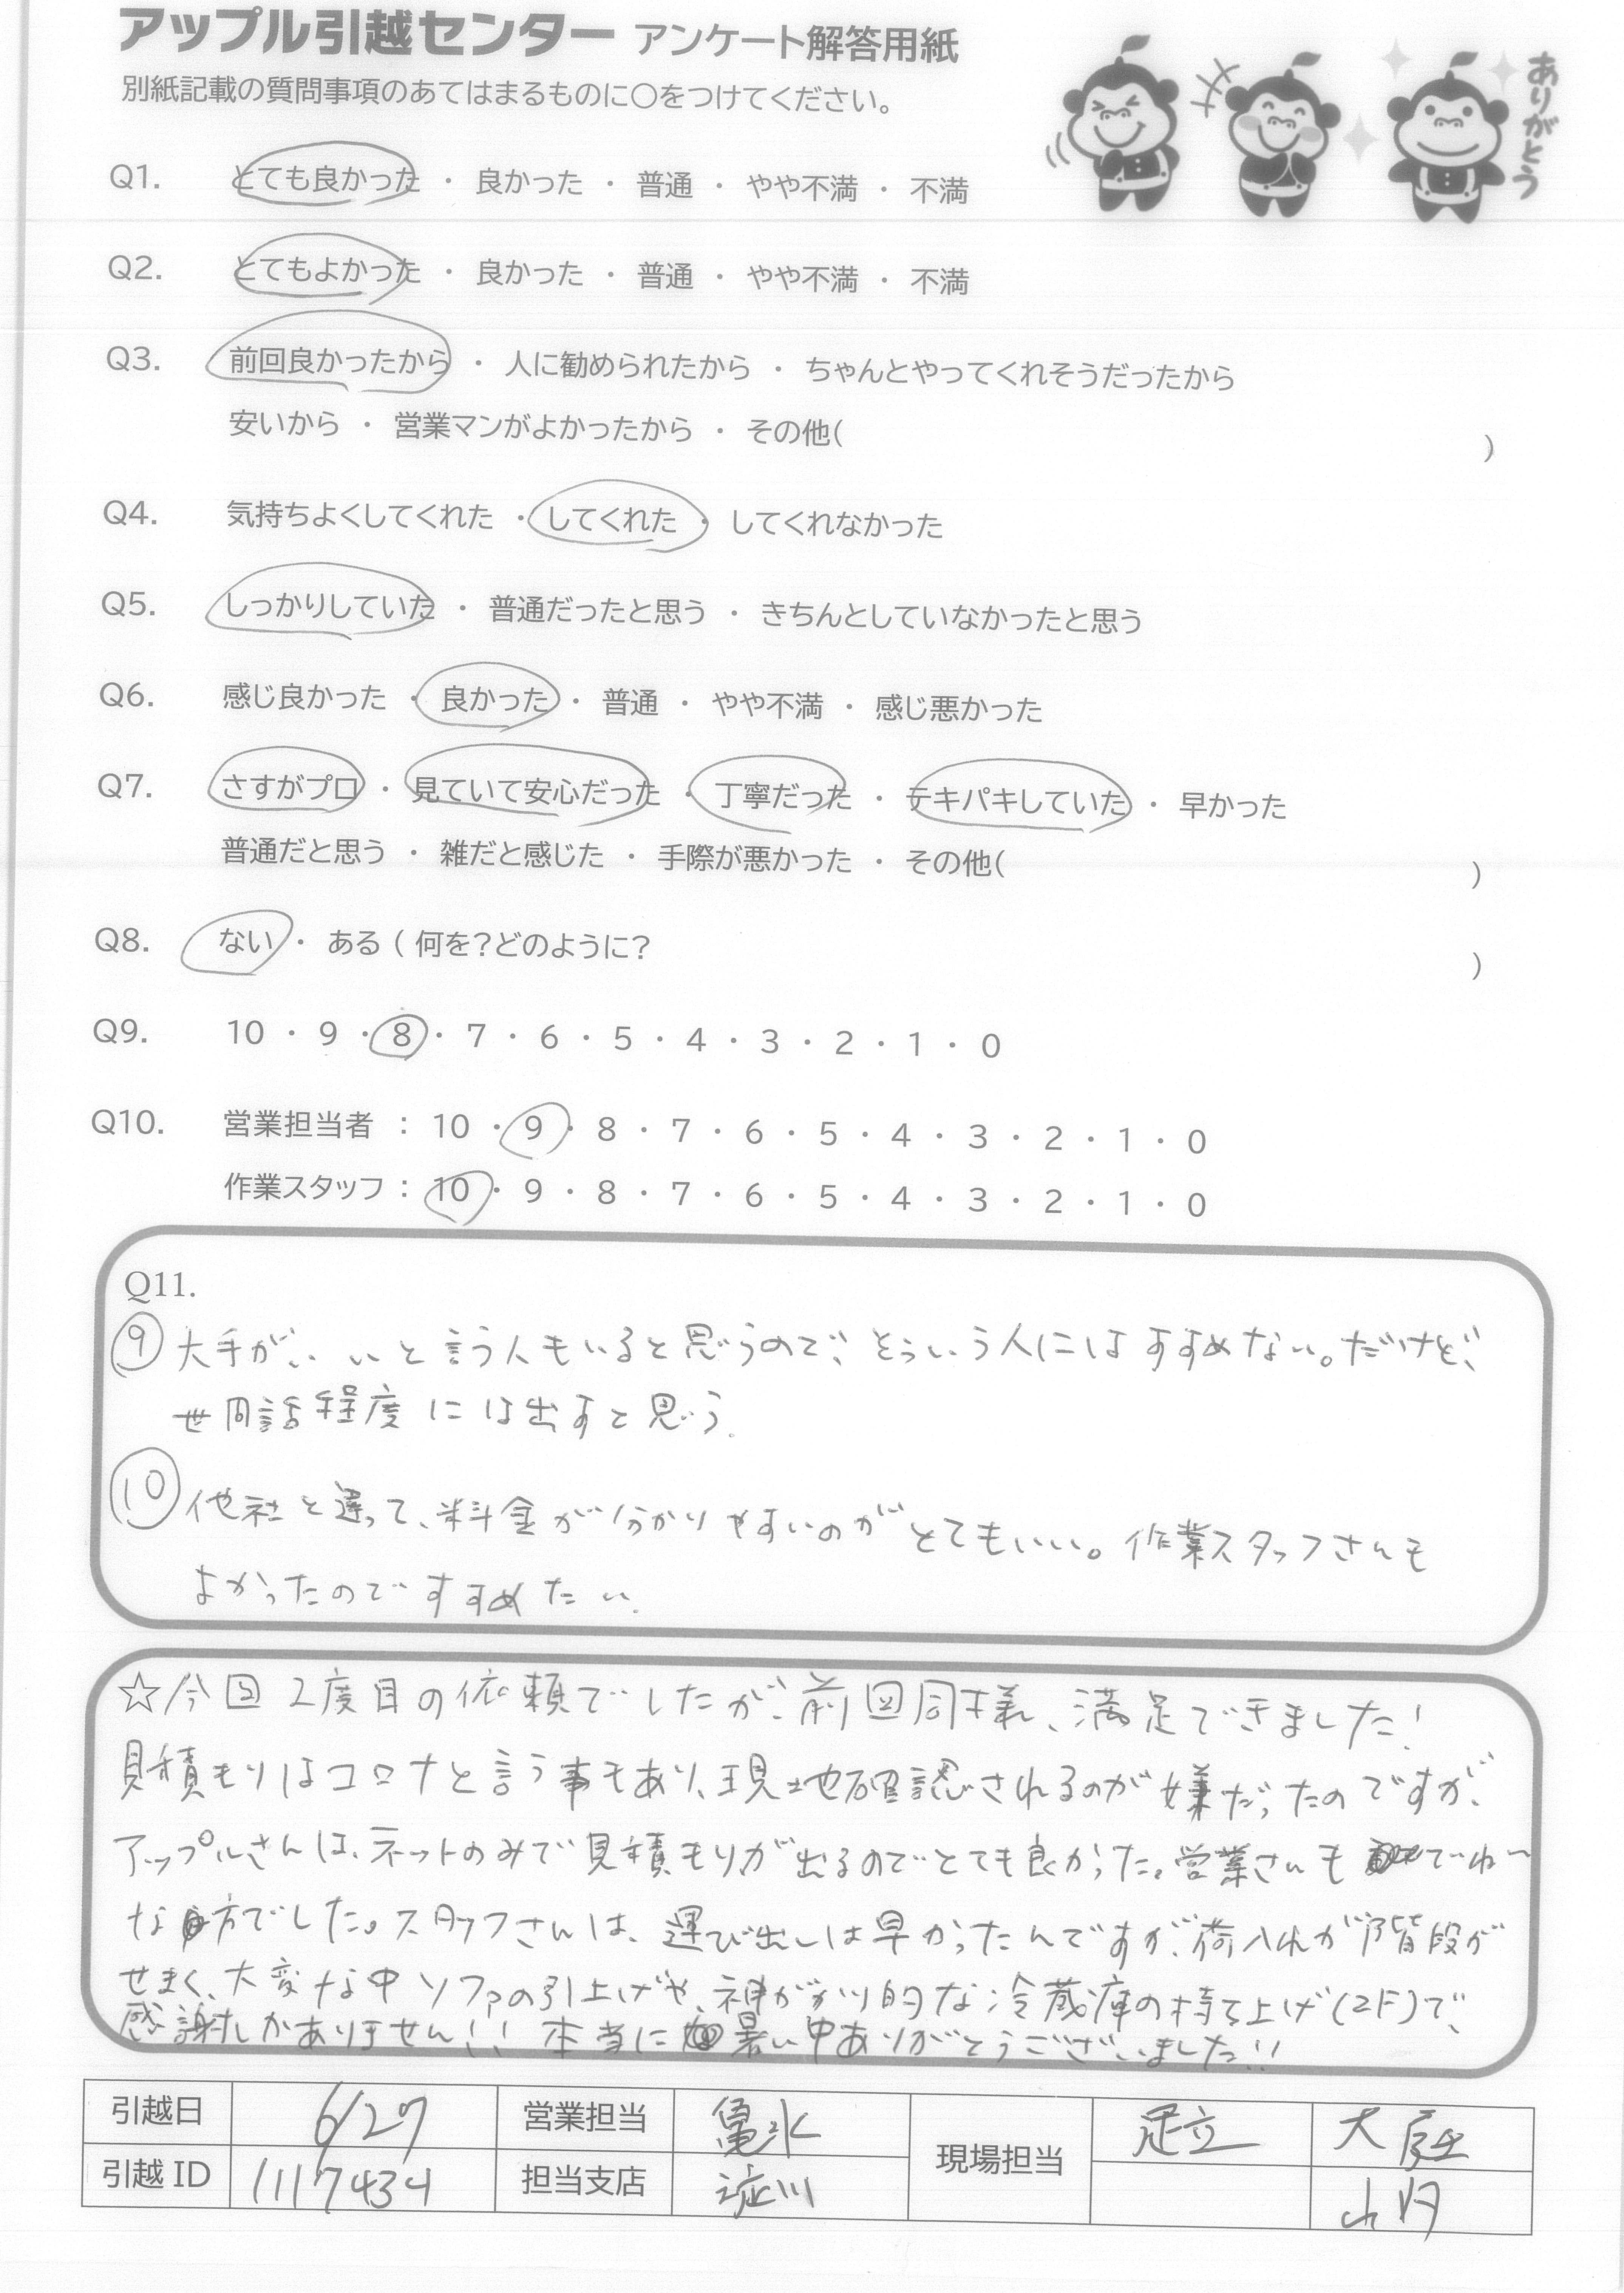 アップル引越センター アンケート解答用紙
別紙記載の質問事項のあてはまるものに○をつけてください。
ありがとう
Q1. とても良かった ・ 良かった ・ 普通 ・ やや不満 ・ 不満
Q2. とてもよかった ・ 良かった ・ 普通 ・ やや不満 ・ 不満
Q3. 前回良かったから ・ 人に勧められたから ・ ちゃんとやってくれそうだったから
安いから ・ 営業マンがよかったから ・ その他( )
Q4. 気持ちよくしてくれた ・ してくれた ・ してくれなかった
Q5. しっかりしていた ・ 普通だったと思う ・ きちんとしていなかったと思う
Q6. 感じ良かった ・ 良かった ・ 普通 ・ やや不満 ・ 感じ悪かった
Q7. さすがプロ ・ 見ていて安心だった ・ 丁寧だった ・ テキパキしていた ・ 早かった
普通だと思う ・ 雑だと感じた ・ 手際が悪かった ・ その他( )
Q8. ない ・ ある ( 何を?どのように? )
Q9. 10 ・ 9 ・ 8 ・ 7 ・ 6 ・ 5 ・ 4 ・ 3 ・ 2 ・ 1 ・ 0
Q10. 営業担当者 : 10 ・ 9 ・ 8 ・ 7 ・ 6 ・ 5 ・ 4 ・ 3 ・ 2 ・ 1 ・ 0
作業スタッフ : 10 ・ 9 ・ 8 ・ 7 ・ 6 ・ 5 ・ 4 ・ 3 ・ 2 ・ 1 ・ 0
Q11.
⑨ 大手がいいと言う人もいると思うので、そういう人にはすすめない。だけど、
世間話程度には出すと思う.
⑩ 他社と違って、料金が分かりやすいのがとてもいい。作業スタッフさんも
よかったのですすめたい.
☆今回2度目の依頼でしたが、前回同様、満足できました!
見積もりはコロナと言う事もあり、現地確認されるのが嫌だったのですが、
アップルさんは、ネットのみで見積もりが出るのでとても良かった。営業さんもていねい
な方でした。スタッフさんは、運び出しは早かったんですが、荷入れが階段が
せまく、大変な中ソファの引上げや、神がかり的な冷蔵庫の持ち上げ(2F)で、
感謝しかありません!! 本当に暑い中ありがとうございました!!
引越日 6/27 営業担当 亀水 現場担当 足立 大庭
引越 ID 1117434 担当支店 淀川 山内